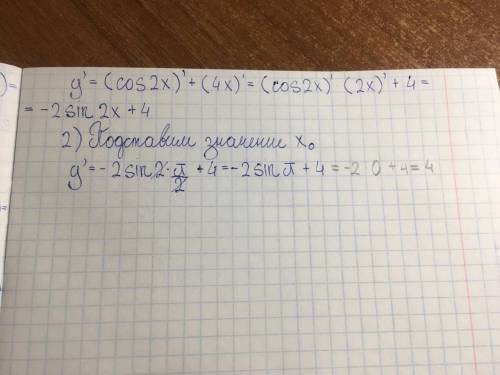 y' = (cos2x)' + (4x)' = (cos2x)' (2x)' + 4 =
= -2 sin 2x + 4
2) Подставим значение x₀
y' = -2 sin 2 · π/2 + 4 = -2 sin π + 4 = -2 0 + 4 = 4